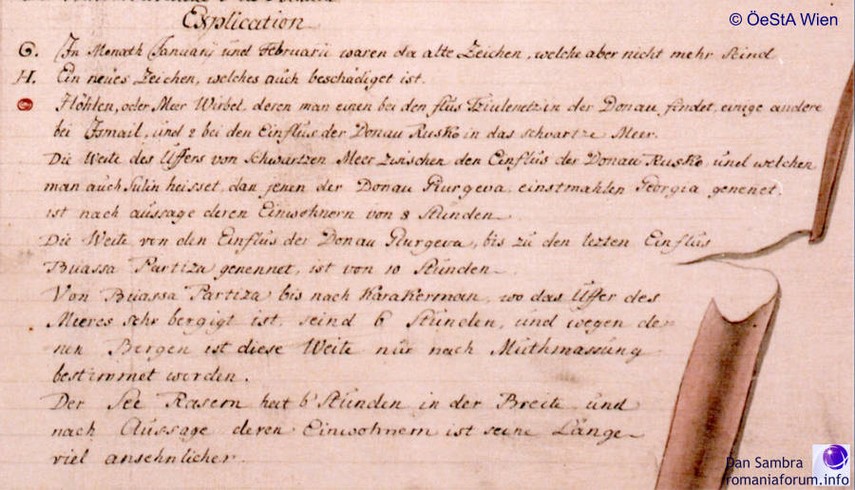 © ÖeStA Wien
Explication
G. In Monath Januarij und Februarii waren da alte Zeichen, welche aber nicht mehr seind
H. Ein neües Zeichen, welches auch beschädiget ist.
Höhlen, oder Meer Wirbel, deren man einen bei den flus in der Donau findet, einige andere
bei Jsmail, und 2 bei den Einflus der Donau Rusko in das schwartze Meer.
Die Weite des Üffers von Schwartzen Meer zwischen den Einflus der Donau Rusko, und welchen
man auch Sulin heisset, dan jenen der Donau Gurgeva, einstmahlen Georgia genenet,
ist nach aüssage deren Einwohnern von 8 Stünden
Die Weite von den Einflus der Donau Gurgeva, bis zu den lezten Einflus
Büassa Partiza genennet, ist von 10 Stünden
Von Büassa Partiza bis nach Karakerman, wo das Üffer des
Meeres sehr bergigt ist, seind 6 Stünden, und wegen de-
nen Bergen ist diese Weite nür nach Müthmassüng
bestimmet worden.
Der See Rasem hat 6 Stünden in der Breite und
nach Aussage deren Einwohnern ist seine Länge
viel ansehnlicher
Dan Sambra
romaniaforum.info